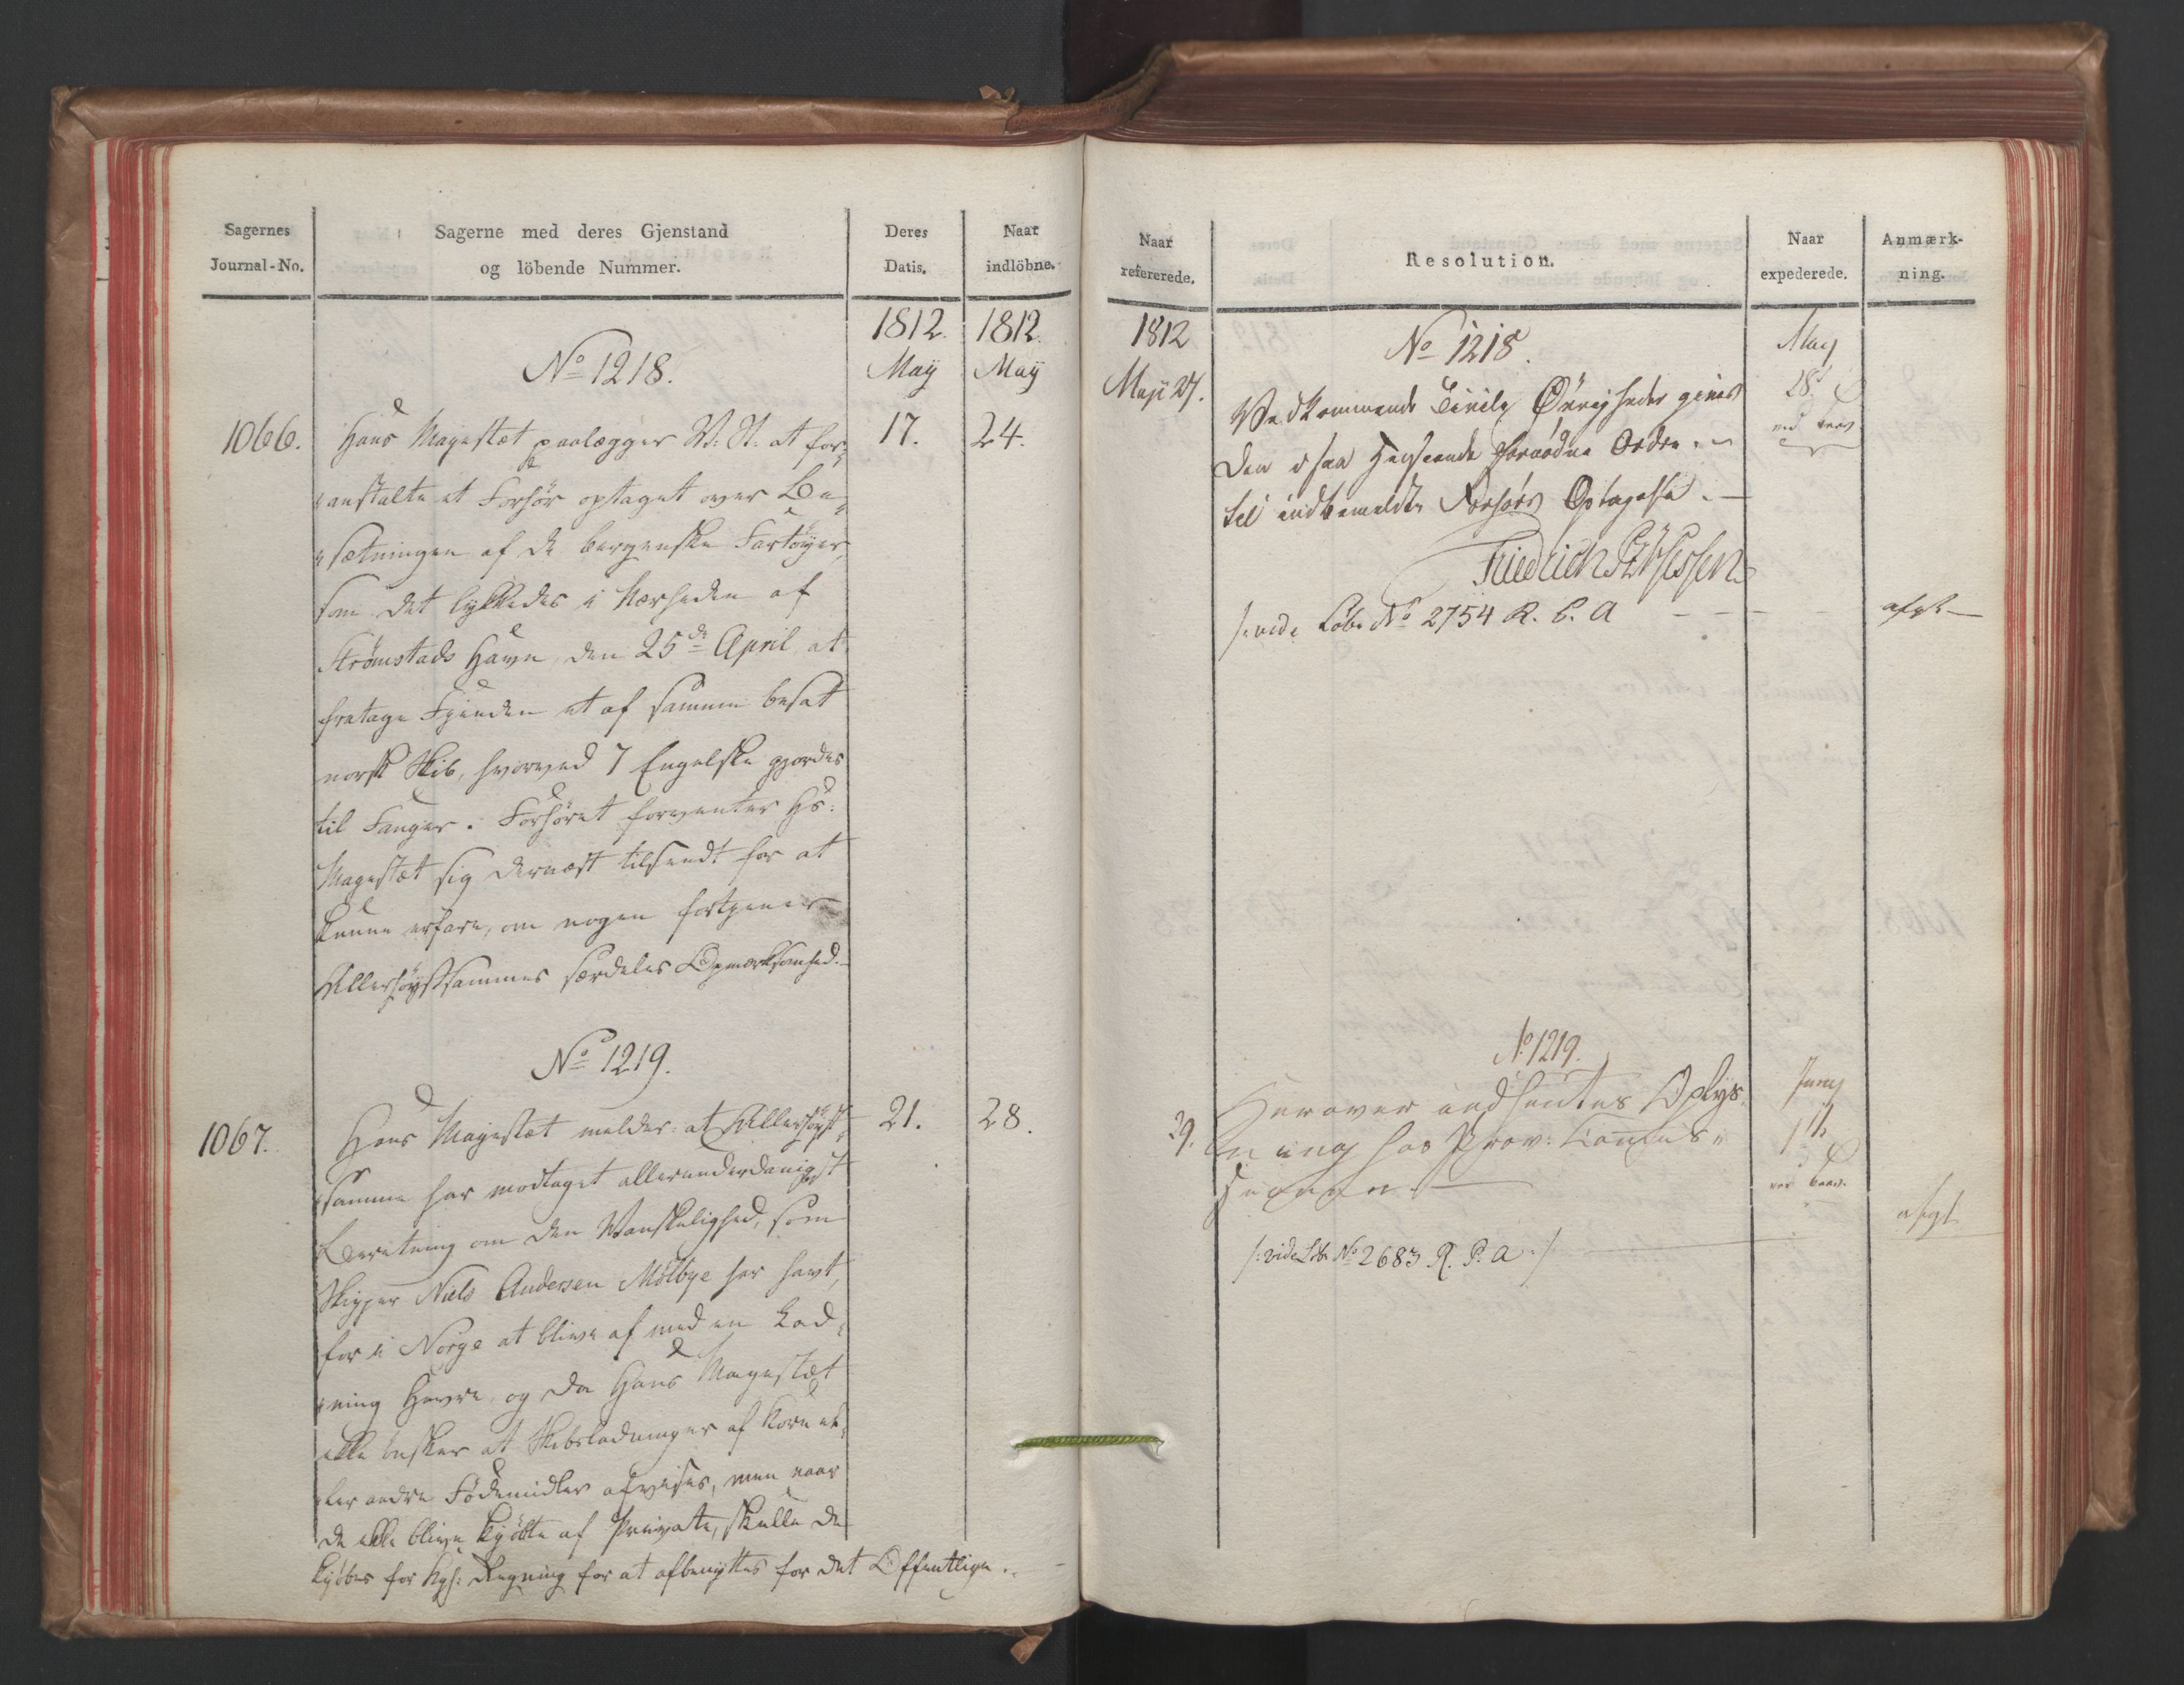 Sagernes
Journal-No.
Sagerne med deres Gjenstand
og löbende Nummer.
Deres
Datis.
Naar
indlöbne.
1812.
May
1812.
May
No 1218.
1066.
17.
24.
Hans Magestæt paalægger V: A: at for-
anstalte et Forhör optaget over Be-
sætningen af de bergenske Fartöyer,
som det lykkedes i Nærheden af
Strømstads Havn, den 25de April at
fratage Fjenden et af samme besat
norsk Skib, hvorved 7 Engelske gjordes
til Fanger. Forhöret forventer Hs:
Magestæt sig dernæst tilsendt for at
kunne erfare, om nogen fortjener
Allerhöystsammes særdeles Opmærksomhed.
No 1219.
1067.
21.
28.
Hans Magestæt melder: at Allerhöyst-
samme har modtaget allerunderdanigst
Beretning om den Vanskelighed, som
Skipper Niels Andersen Mölbye har havt,
for i Norge at blive af med en Lad-
ning Havre, og da Hans Magestæt
ikke önsker at Skibsladninger af Korn el-
ler andre Födemidler afvises, men naar
de ikke blive kjöbte af Private, skulle de
kjöbes for Kgl: Regning for at afbenyttes for det Offentlige.
Naar
refererede.
Resolution.
Naar
expederede.
Anmærk-
ning.
1812
Maji 27.
No 1218.
May
28.
Vedkommende Civile Øvrighed gives
den i saa Henseende fornødne Ordre
til indbemeldte Forhørs Optagelse.
Friedrich
/: vide Løbe No 2754 R. P. A
afgt
No 1219.
29.
Juny
1
Herover indhentes Oplys-
ning hos Prov: Commis-
sionen.
afgt
/: vide Løb No 2683 R. P. A :/